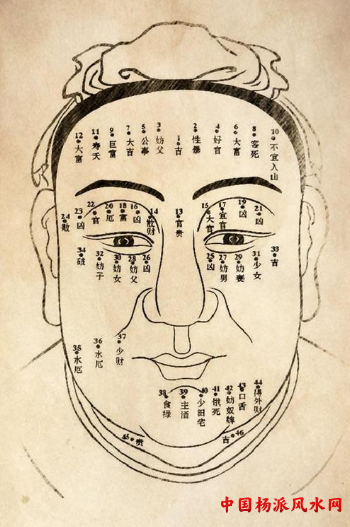 12 大富
11 寿夭
9 巨富
7 大吉
5 公事
3 妨父
1 吉
2 性暴
4 好官
6 大富
8 客死
10 不宜入山
24
23 凶
22 官
20 厄
18 富
16 凶
14 散财
13 官贵
15 大吉
17 宜官
19 凶
21 凶
34
32 妨子
30 妨女
28 妨父
26 凶
25 凶
27 妨男
29 妨妻
31 少女
33 吉
35 水厄
36 水厄
37 少财
38 食禄
39 主酒
40 少田宅
41 饿死
42 妨奴婢
43 口舌
44 得外财
45 贵
46 吉
中国杨派风水网